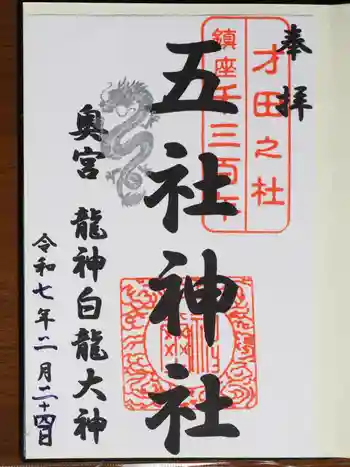 奉拝
才田之社
鎮座千三百年
五社神社
奥宮 龍神白龍大神
令和七年二月二十四日